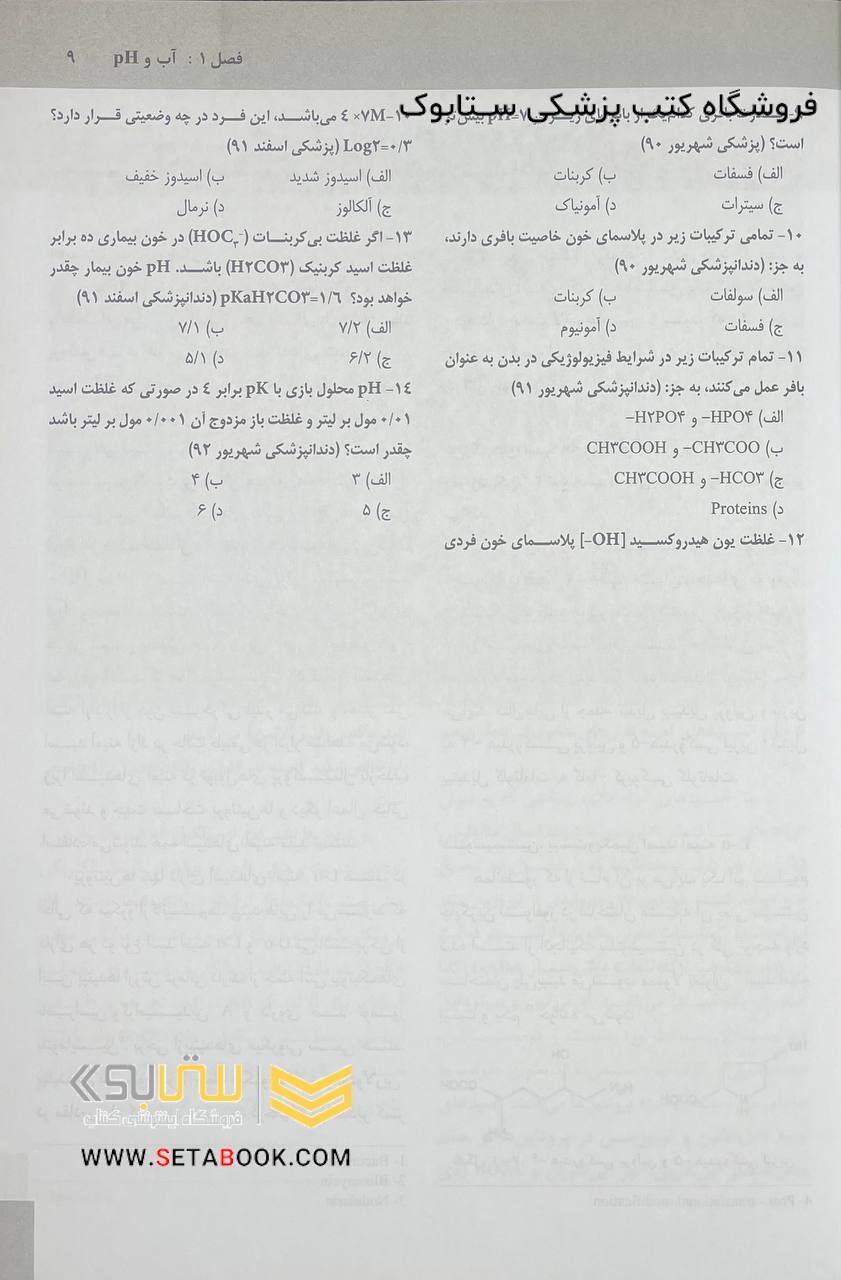 فصل ۱ : آب و pH ۹
فروشگاه کتب پزشکی ستابوک
است؟ (پزشکی شهریور ۹۰)
الف) فسفات ب) کربنات
ج) سیترات د) آمونیاک
۱۰- تمامی ترکیبات زیر در پلاسمای خون خاصیت بافری دارند،
به جز: (دندانپزشکی شهریور ۹۰)
الف) سولفات ب) کربنات
ج) فسفات د) آمونیوم
۱۱- تمام ترکیبات زیر در شرایط فیزیولوژیکی در بدن به عنوان
بافر عمل می‌کنند، به جز: (دندانپزشکی شهریور ۹۱)
الف) HPO۴– و H۲PO۴–
ب) CH۳COO– و CH۳COOH
ج) HCO۳– و CH۳COOH
د) Proteins
۱۲- غلظت یون هیدروکسید [OH–] پلاسمای خون فردی
۴ ×۱۰–۷M می‌باشد، این فرد در چه وضعیتی قرار دارد؟
Log۲=۰/۳ (پزشکی اسفند ۹۱)
الف) اسیدوز شدید ب) اسیدوز خفیف
ج) آلکالوز د) نرمال
۱۳- اگر غلظت بی‌کربنات (HOC۳–) در خون بیماری ده برابر
غلظت اسید کربنیک (H۲CO۳) باشد. pH خون بیمار چقدر
خواهد بود؟ pKaH۲CO۳=۱/۶ (دندانپزشکی اسفند ۹۱)
الف) ۷/۲ ب) ۷/۱
ج) ۶/۲ د) ۵/۱
۱۴- pH محلول بازی با pK برابر ۴ در صورتی که غلظت اسید
۰/۰۱ مول بر لیتر و غلظت باز مزدوج آن ۰/۰۰۱ مول بر لیتر باشد
چقدر است؟ (دندانپزشکی شهریور ۹۲)
الف) ۳ ب) ۴
ج) ۵ د) ۶
ستابوک
فروشگاه اینترنتی کتاب
WWW.SETABOOK.COM